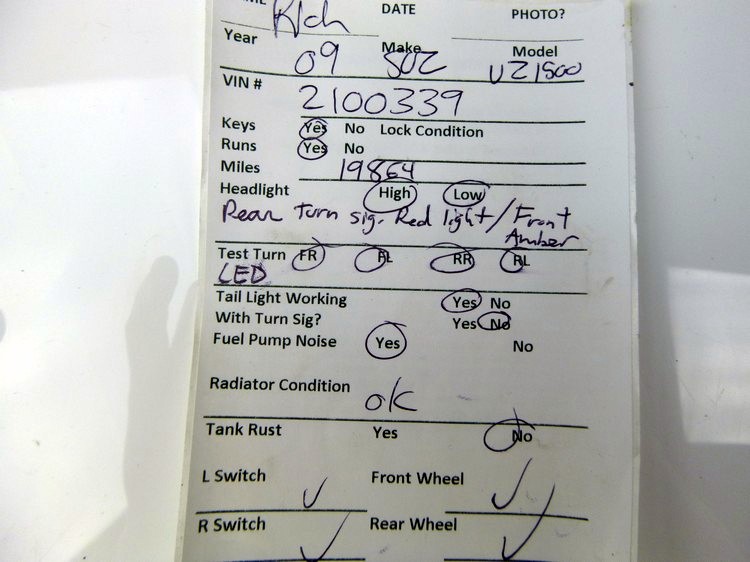 Rich DATE PHOTO?
Year 09 Make SUZ Model VZ1500
VIN # 2100339
Keys Yes No Lock Condition
Runs Yes No
Miles 19864
Headlight High Low
Rear turn sig. Red light / Front
Amber
Test Turn FR FL RR RL
LED
Tail Light Working Yes No
With Turn Sig? Yes No
Fuel Pump Noise Yes No
Radiator Condition ok
Tank Rust Yes No
L Switch Front Wheel
R Switch Rear Wheel